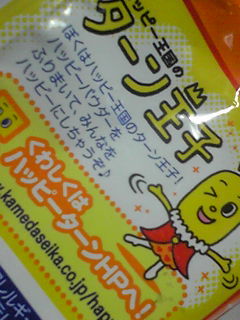 ッピー王国の
ターン王子
ぼくはハッピー王国のターン王子!
ハッピーパウダーを
ふりまいて、みんなを
ハッピーにしちゃうぞ♪
くわしくは
ハッピーターンHPへ!
.kamedaseika.co.jp/hap
アレルギ